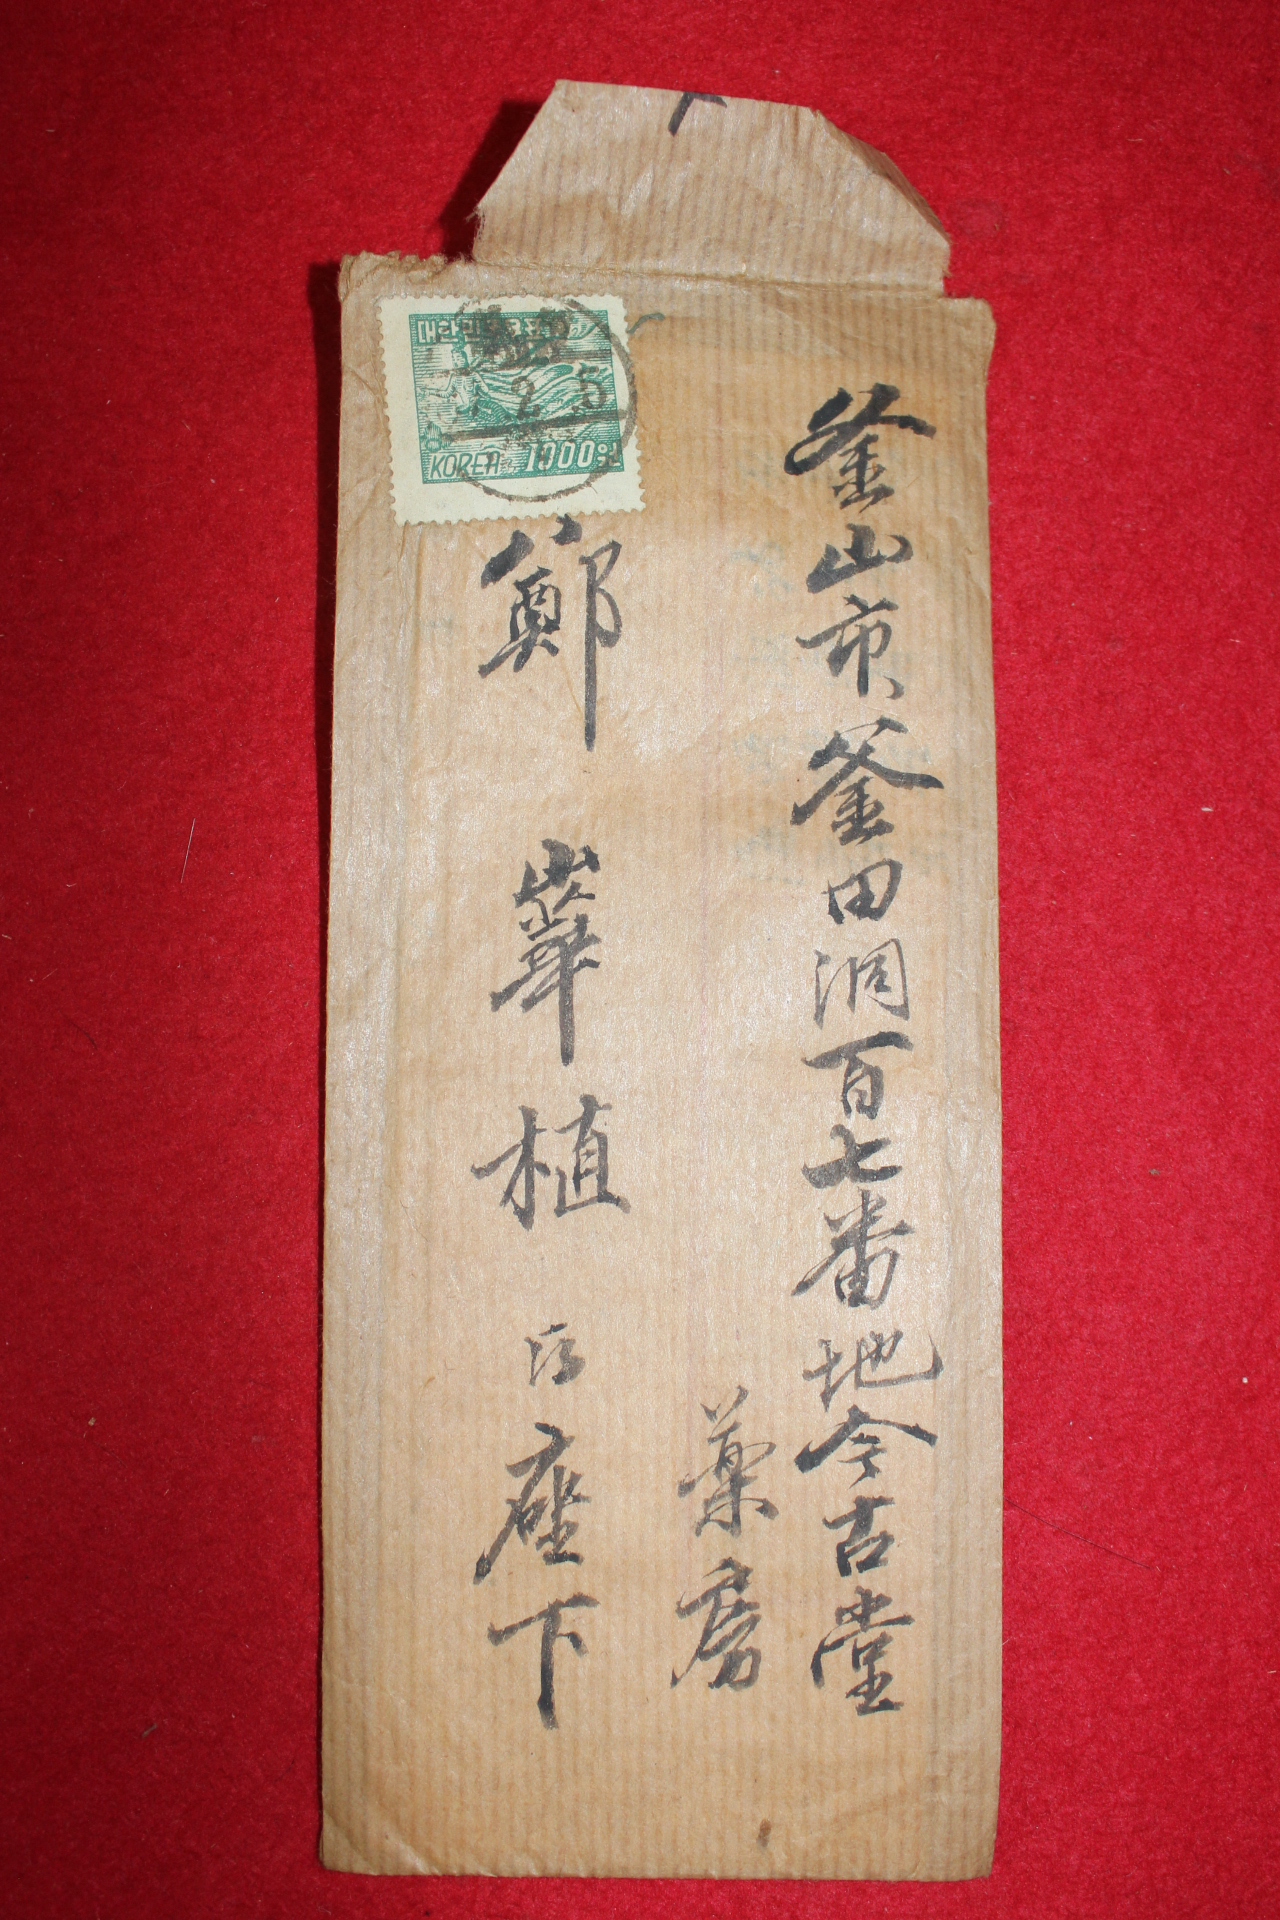 대한민국우표
2 5
KOREA 1000원
釜山市釜田洞百七番地今古堂
藥房
鄭崋植 座下